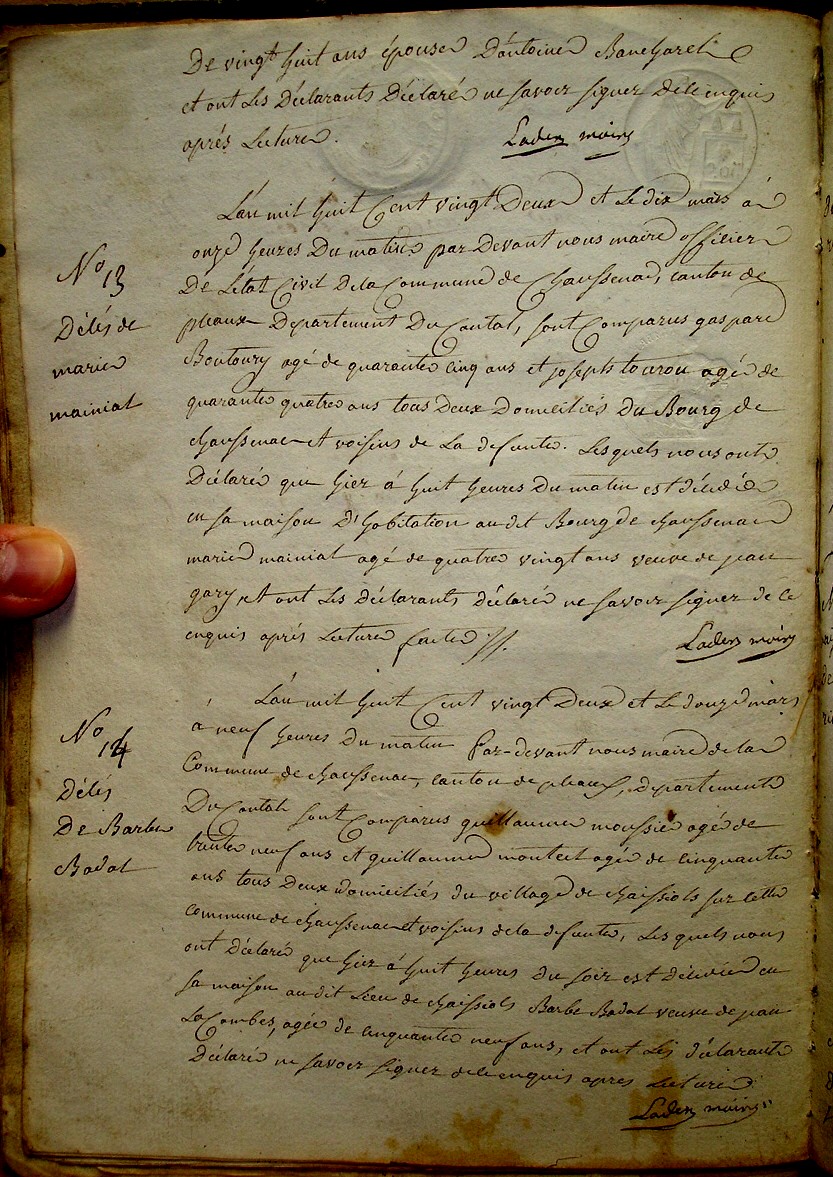 De vingt huit ans épouse D'antoine
et ont Les Déclarants Déclaré ne savoir signer De ce enquis
après Lecture.
Laden maire
L'an mil huit Cent vingt Deux et Le dix mars à
onze heures Du matin par Devant nous maire officier
De L'état Civil De la Commune de Chaussenac, canton de
pleaux Departement Du Cantal, sont Comparus gaspard
Boutoury agé de quarante cinq ans et joseph tourou agé de
quarante quatre ans tous Deux Domiciliés Du Bourg de
chaussenac et voisins de La defunte. Lesquels nous onts
Déclaré que hier à huit heures Du matin est décédée
en sa maison D'habitation au dit Bourg de chaussenac
marie mainial agé de quatre vingt ans veuve de jean
gary, et ont Les Déclarants Déclaré ne savoir signer de ce
enquis après Lecture faite //.
Laden maire
No 13
Décés de
marie
mainial
L'an mil huit Cent vingt Deux et Le douze mars
à neuf heures Du matin Par-devant nous maire de la
Commune de chaussenac, canton de pleaux, departement
Du Cantal sont Comparus guillaume moussié agé de
trente neuf ans et guillaume monteil agé de cinquante
ans tous Deux domiciliés du village de chaissiols sur cette
commune de chaussenac et voisins de la defunte, Les quels nous
ont Déclaré que hier à huit heures du soir est Décédée en
sa maison au dit Lieu de chaissiols Barbe Badal veuve de jean
La Combes, agée de cinquante neuf ans, et ont Les déclarants
Déclaré ne savoir signer de ce enquis apres Lecture
Laden maire
No 14
Décés
De Barbe
Badal